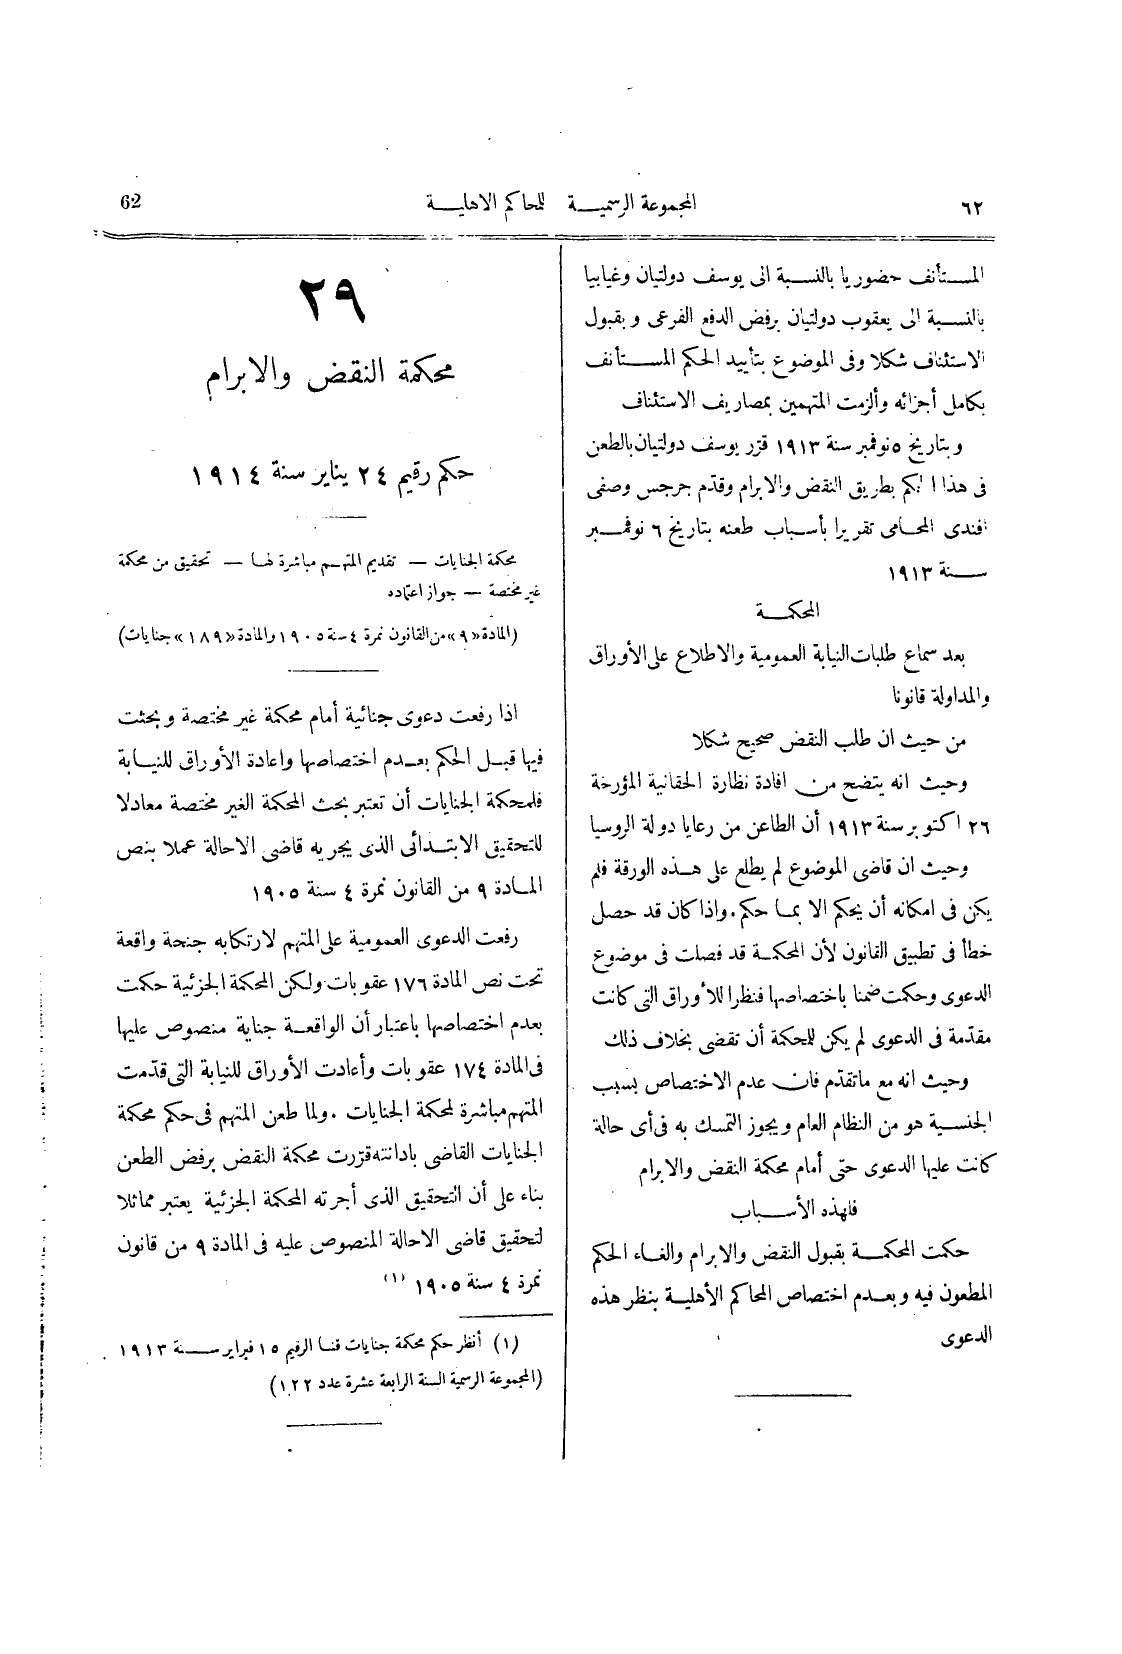 ٦٢
المجموعة الرسمية للمحاكم الاهلية
62
المستأنف حضوريا بالنسبة الى يوسف دولتيان وغيابيا
بالنسبة الى يعقوب دولتيان برفض الدفع الفرعى وبقبول
الاستئناف شكلا وفى الموضوع بتأييد الحكم المستأنف
بكامل أجزائه وألزمت المتهمين بمصاريف الاستئناف
وبتاريخ ٥ نوفمبر سنة ١٩١٣ قرّر يوسف دولتيان بالطعن
فى هذا الحكم بطريق النقض والابرام وقدّم جرجس وصفى
افندى المحامى تقريرا بأسباب طعنه بتاريخ ٦ نوفمبر
سنة ١٩١٣
المحكمة
بعد سماع طلبات النيابة العمومية والاطلاع على الأوراق
والمداولة قانونا
من حيث ان طلب النقض صحيح شكلا
وحيث انه يتضح من افادة نظارة الحقانية المؤرخة
٢٦ اكتوبر سنة ١٩١٣ أن الطاعن من رعايا دولة الروسيا
وحيث ان قاضى الموضوع لم يطلع على هذه الورقة فلم
يكن فى امكانه أن يحكم الا بما حكم. واذا كان قد حصل
خطأ فى تطبيق القانون لأن المحكمة قد فصلت فى موضوع
الدعوى وحكمت ضمنا باختصاصها فنظرا للأوراق التى كانت
مقدّمة فى الدعوى لم يكن للمحكمة أن تقضى بخلاف ذلك
وحيث انه مع ماتقدم فان عدم الاختصاص بسبب
الجنسية هو من النظام العام ويجوز التمسك به فى أى حالة
كانت عليها الدعوى حتى أمام محكمة النقض والابرام
فلهذه الأسباب
حكمت المحكمة بقبول النقض والابرام والغاء الحكم
المطعون فيه وبعدم اختصاص المحاكم الأهلية بنظر هذه
الدعوى
٢٩
محكمة النقض والابرام
حكم رقيم ٢٤ يناير سنة ١٩١٤
محكمة الجنايات — تقديم المتهم مباشرة لها — تحقيق من محكمة
غير مختصة — جواز اعتماده
(المادة «٩» من القانون نمرة ٤ سنة ١٩٠٥ والمادة «١٨٩» جنايات)
اذا رفعت دعوى جنائية أمام محكمة غير مختصة وبحثت
فيها قبل الحكم بعدم اختصاصها واعادة الأوراق للنيابة
فلمحكمة الجنايات أن تعتبر بحث المحكمة الغير مختصة معادلا
للتحقيق الابتدائى الذى يجريه قاضى الاحالة عملا بنص
المادة ٩ من القانون نمرة ٤ سنة ١٩٠٥
رفعت الدعوى العمومية على المتهم لارتكابه جنحة واقعة
تحت نص المادة ١٧٦ عقوبات ولكن المحكمة الجزئية حكمت
بعدم اختصاصها باعتبار أن الواقعة جناية منصوص عليها
فى المادة ١٧٤ عقوبات وأعادت الأوراق للنيابة التى قدّمت
المتهم مباشرة لمحكمة الجنايات. ولما طعن المتهم فى حكم محكمة
الجنايات القاضى بادانته قرّرت محكمة النقض برفض الطعن
بناء على أن التحقيق الذى أجرته المحكمة الجزئية يعتبر مماثلا
لتحقيق قاضى الاحالة المنصوص عليه فى المادة ٩ من قانون
نمرة ٤ سنة ١٩٠٥ (١)
(١) أنظر حكم محكمة جنايات قنا الرقيم ١٥ فبراير سنة ١٩١٣
(المجموعة الرسمية السنة الرابعة عشرة عدد ١٢٢)